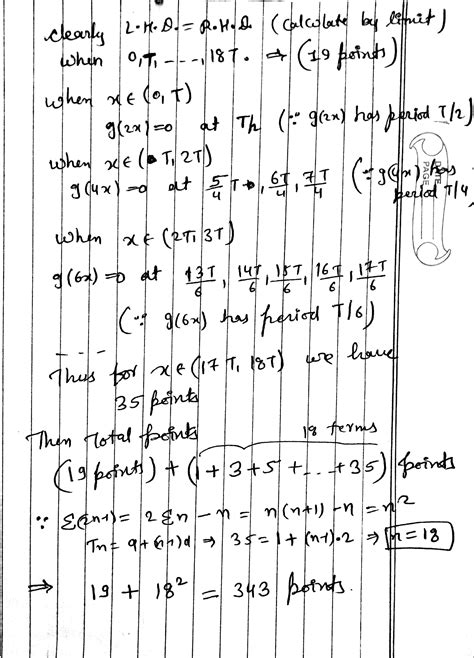 clearly L.H.D. = R.H.D. (calculate by limit)
when 0, T, ----, 18T. ⇒ (19 points)
when x ∈ (0, T)
g(2x)=0 at T/2 (∵ g(2x) has period T/2)
when x ∈ (T, 2T)
g(4x)=0 at 5/4 T, 6T/4, 7T/4 (∵ g(4x) has period T/4)
DATE
PAGE
when x ∈ (2T, 3T)
g(6x)=0 at 13T/6, 14T/6, 15T/6, 16T/6, 17T/6
(∵ g(6x) has period T/6)
- - - -
Thus for x ∈ (17T, 18T) we have
35 points
Then Total points
18 terms
(19 points) + (1+3+5+...+35) points
∵ Σ(2n-1) = 2Σn - n = n(n+1) - n = n²
Tn = a+(n-1)d ⇒ 35 = 1+(n-1)·2 ⇒ n=18
⇒ 19 + 18² = 343 points.